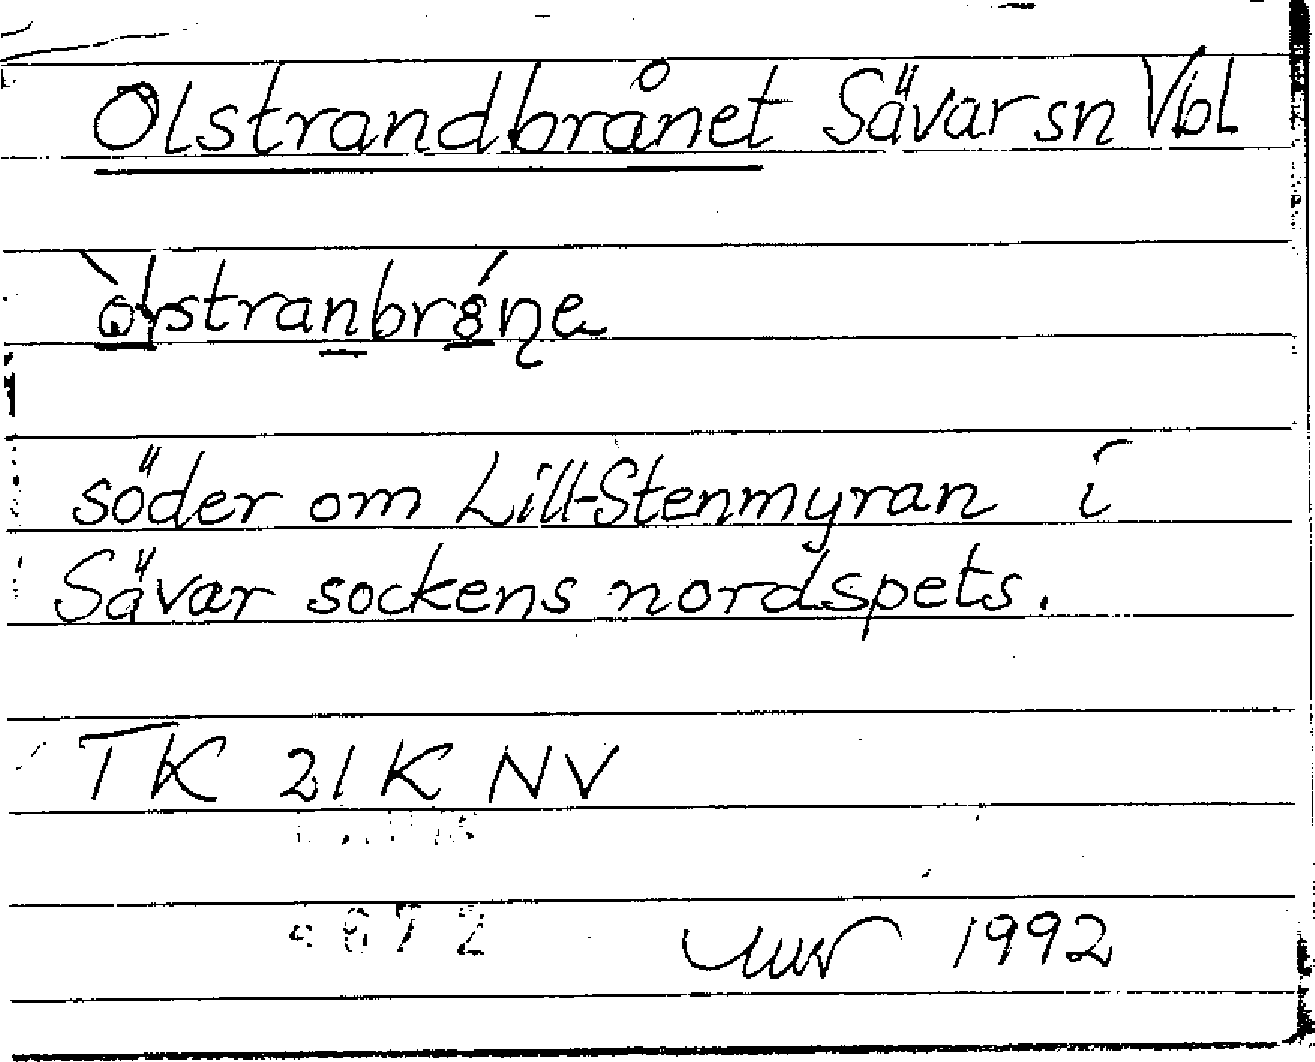 Olstrandbrånet Sävar sn Vbl
söder om Lill-Stenmyran i
Sävar sockens nordspets.
TK 21 K NV
1992